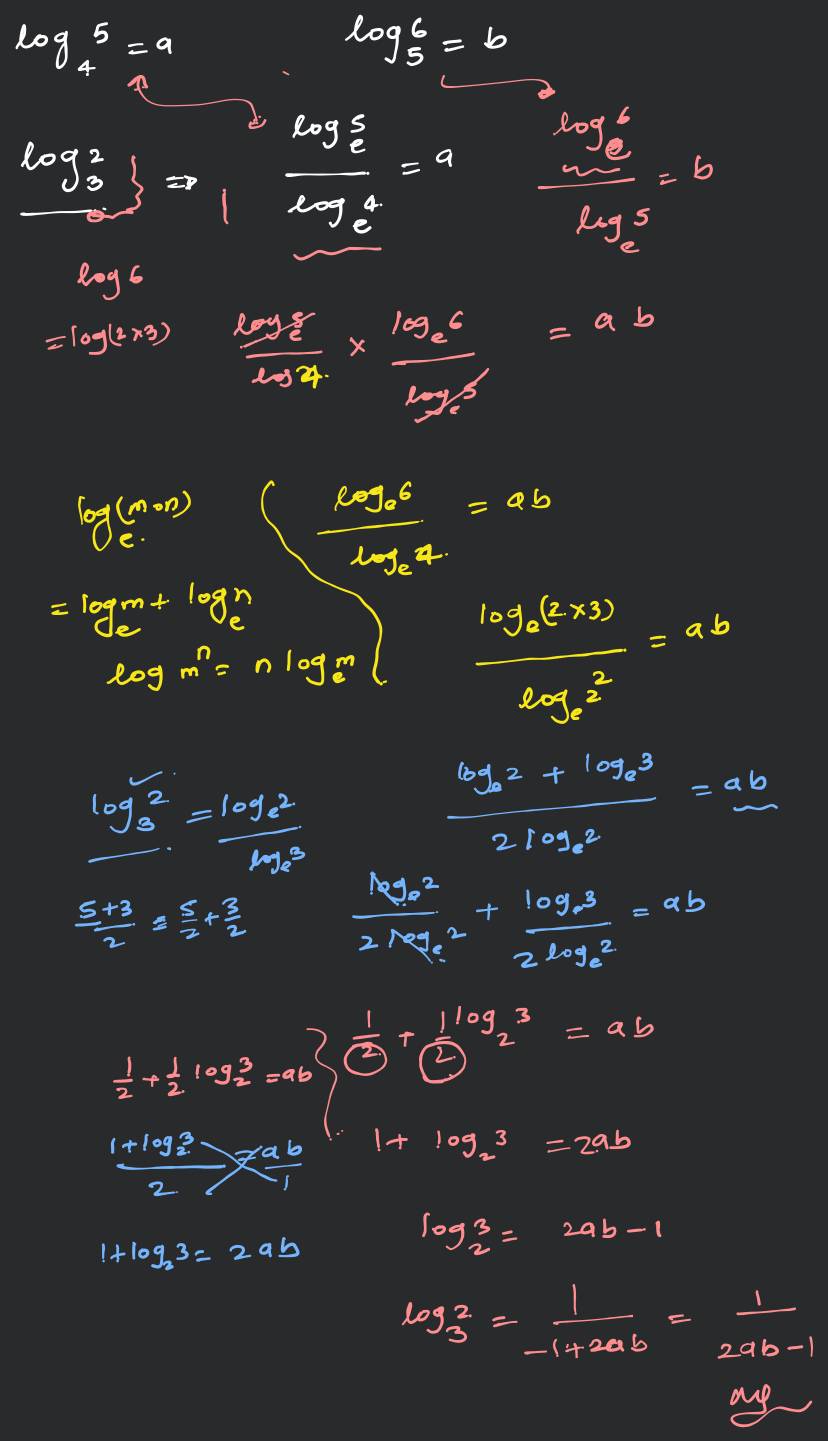 log₄5 = a    log₅6 = b
log₃2 } ⇒ | logₑ5 / logₑ4 = a    logₑ6 / logₑ5 = b
log6
= log(2×3)    logₑ5 / log4 × logₑ6 / logₑ5 = ab
logₑ(m·n)    logₑ6 / logₑ4 = ab
= logₑm + logₑn    logₑ(2×3) / logₑ2² = ab
log mⁿ = n logₑm
log₃2 = logₑ2 / logₑ3    logₑ2 + logₑ3 / 2logₑ2 = ab
5+3 / 2 = 5/2 + 3/2    logₑ2 / 2logₑ2 + logₑ3 / 2logₑ2 = ab
1/2 + 1/2 log₂3 = ab    1/2 + 1/2 log₂3 = ab
1+log₂3 / 2 = ab / 1    1 + log₂3 = 2ab
1+log₂3 = 2ab    log₂3 = 2ab-1
log₃2 = 1 / -1+2ab = 1 / 2ab-1